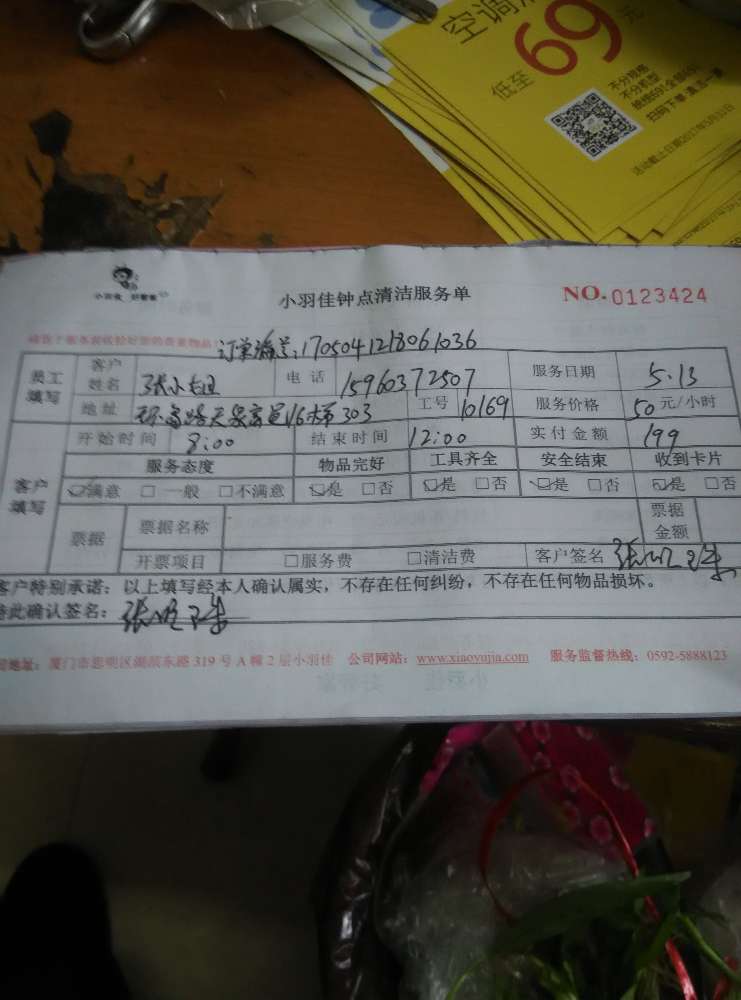 空调
低至69元
不分规格
不分机型
扫码下单 清洗一夏
活动截止日期2017年5月31日
小羽佳 好管家
小羽佳钟点清洁服务单
NO. 0123424
订单编号:1705041218061036
员工填写 客户姓名 张小姐 电话 15960372507 服务日期 5.13
地址 16梯303 工号 10169 服务价格 50元/小时
开始时间 8:00 结束时间 12:00 实付金额 199
客户填写 服务态度 物品完好 工具齐全 安全结束 收到卡片
☑满意 □一般 □不满意 ☑是 □否 ☑是 □否 ☑是 □否 ☑是 □否
票据 票据名称 票据金额
开票项目 □服务费 □清洁费 客户签名
客户特别承诺:以上填写经本人确认属实,不存在任何纠纷,不存在任何物品损坏。
特此确认签名:
司地址:厦门市思明区湖滨东路319号A幢2层小羽佳 公司网站:www.xiaoyujia.com 服务监督热线:0592-5888123